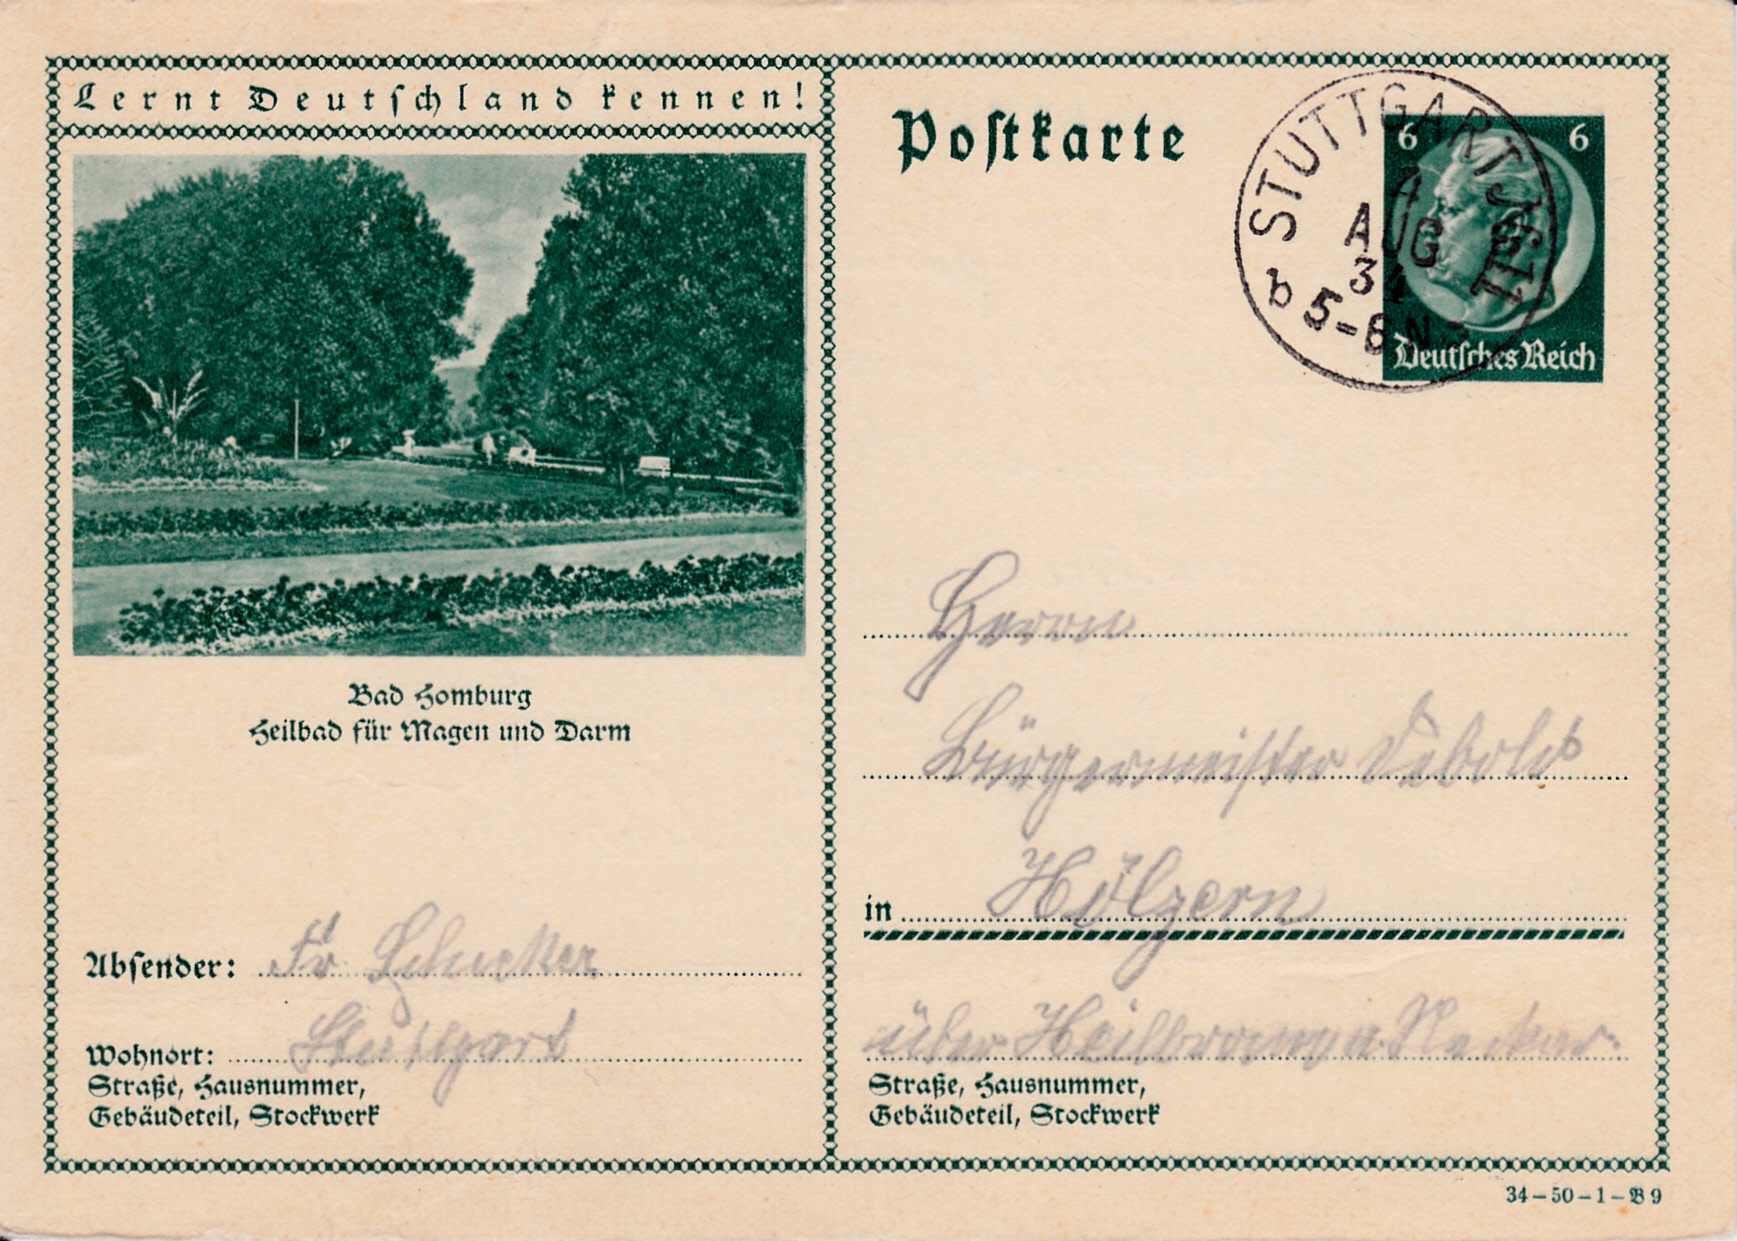 Lernt Deutschland kennen!
Bad Homburg
Heilbad für Magen und Darm
Absender: Fr. Schucker
Wohnort: Stuttgart
Straße, Hausnummer,
Gebäudeteil, Stockwerk
Postkarte
STUTTGART
4
AUG
34
b 5-6 N
6 6
Deutsches Reich
Herrn
Bürgermeister
in Hölzern
über Heilbronn a. Neckar.
Straße, Hausnummer,
Gebäudeteil, Stockwerk
34-50-1-B9